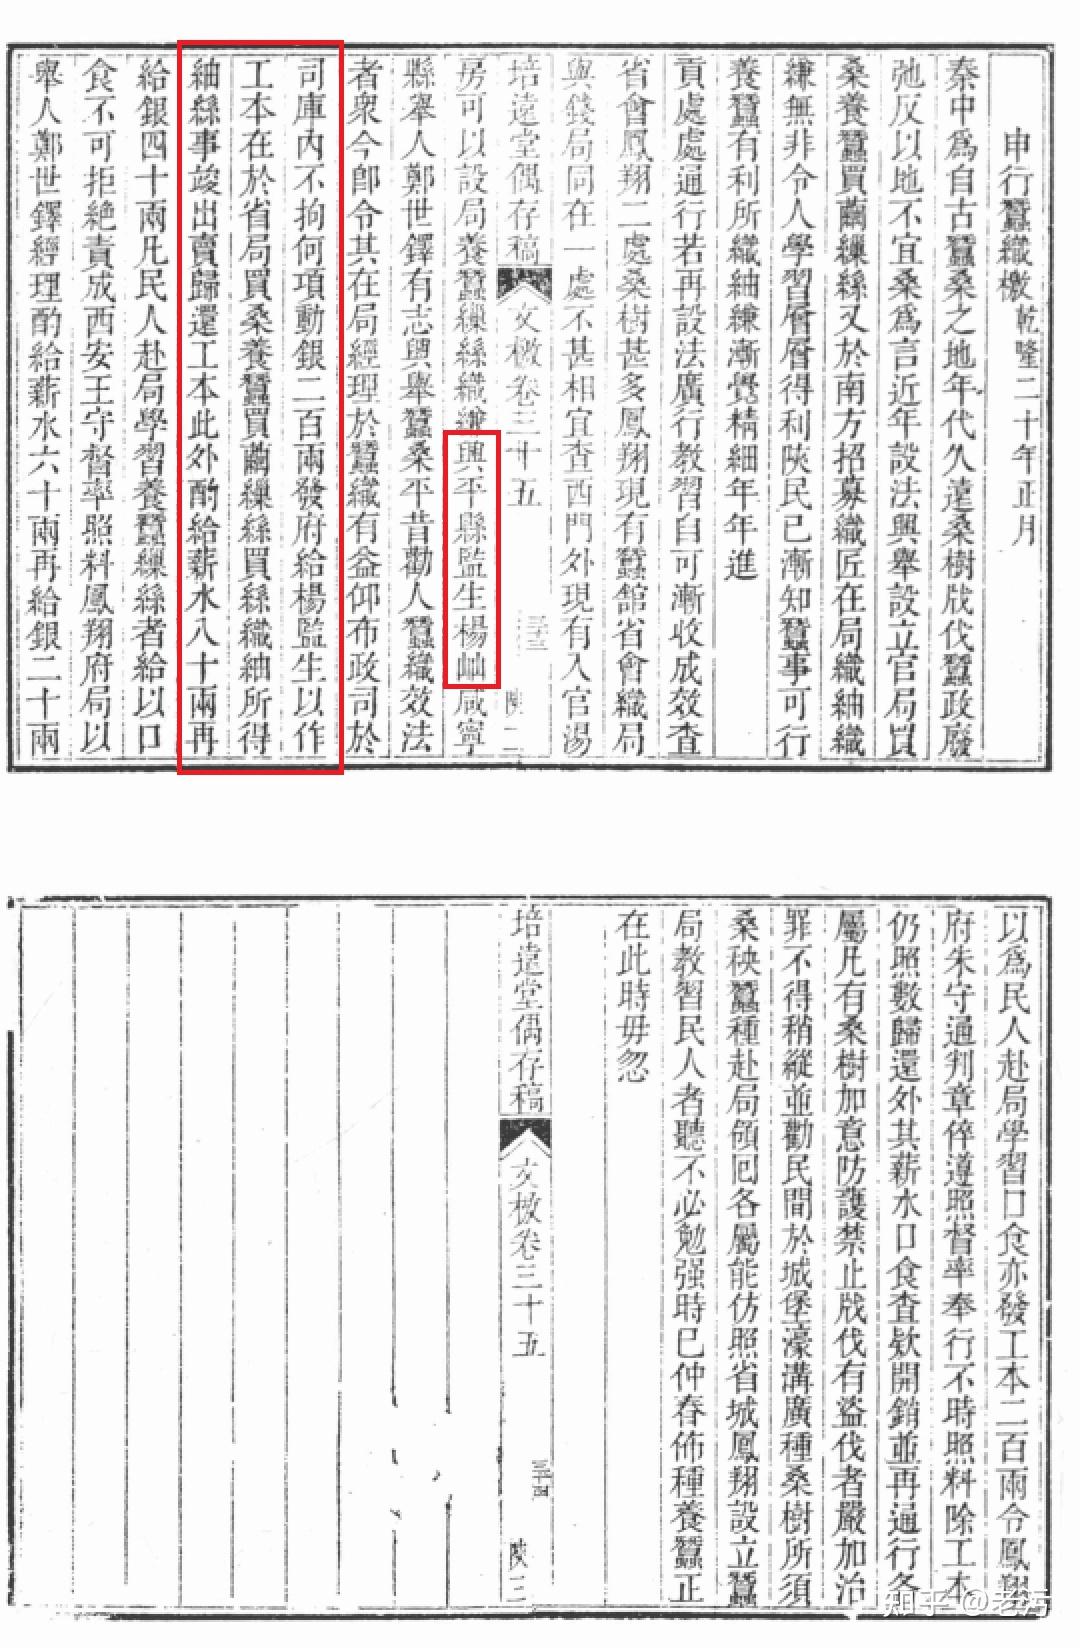 申行蠶織檄乾隆二十年正月
秦中為自古蠶桑之地年代久遠桑樹戕伐蠶政廢
弛反以地不宜桑為言近年設法興舉設立官局買
桑養蠶買繭繅絲又於南方招募織匠在局織紬織
縑無非令人學習層層得利陝民已漸知蠶事可行
養蠶有利所織紬縑漸覺精細年年進
貢處處通行若再設法廣行教習自可漸收成效查
省會鳳翔二處桑樹甚多鳳翔現有蠶舘省會織局
與錢局同在一處不甚相宜查西門外現有入官湯
培遠堂偶存稿 文檄卷三十五 三十三 陝二
房可以設局養蠶繅絲織縑興平縣監生楊屾咸寧
縣舉人鄭世鐸有志興舉蠶桑平昔勸人蠶織效法
者衆今卽令其在局經理於蠶織有益仰布政司於
司庫內不拘何項動銀二百兩發府給楊監生以作
工本在於省局買桑養蠶買繭繅絲買絲織紬所得
紬絲事竣出賣歸還工本此外酌給薪水八十兩再
給銀四十兩凡民人赴局學習養蠶繅絲者給以口
食不可拒絶責成西安王守督率照料鳳翔府局以
舉人鄭世鐸經理酌給薪水六十兩再給銀二十兩
以為民人赴局學習口食亦發工本二百兩令鳳翔
府朱守通判章倅遵照督率奉行不時照料除工本
仍照數歸還外其薪水口食查欵開銷並再通行各
屬凡有桑樹加意防護禁止戕伐有盜伐者嚴加治
罪不得稍縱並勸民間於城堡濠溝廣種桑樹所須
桑秧蠶種赴局領囘各屬能仿照省城鳳翔設立蠶
局教習民人者聽不必勉强時已仲春佈種養蠶正
在此時毋忽
培遠堂偶存稿 文檄卷三十五 三十四 陝三
知乎 @老污